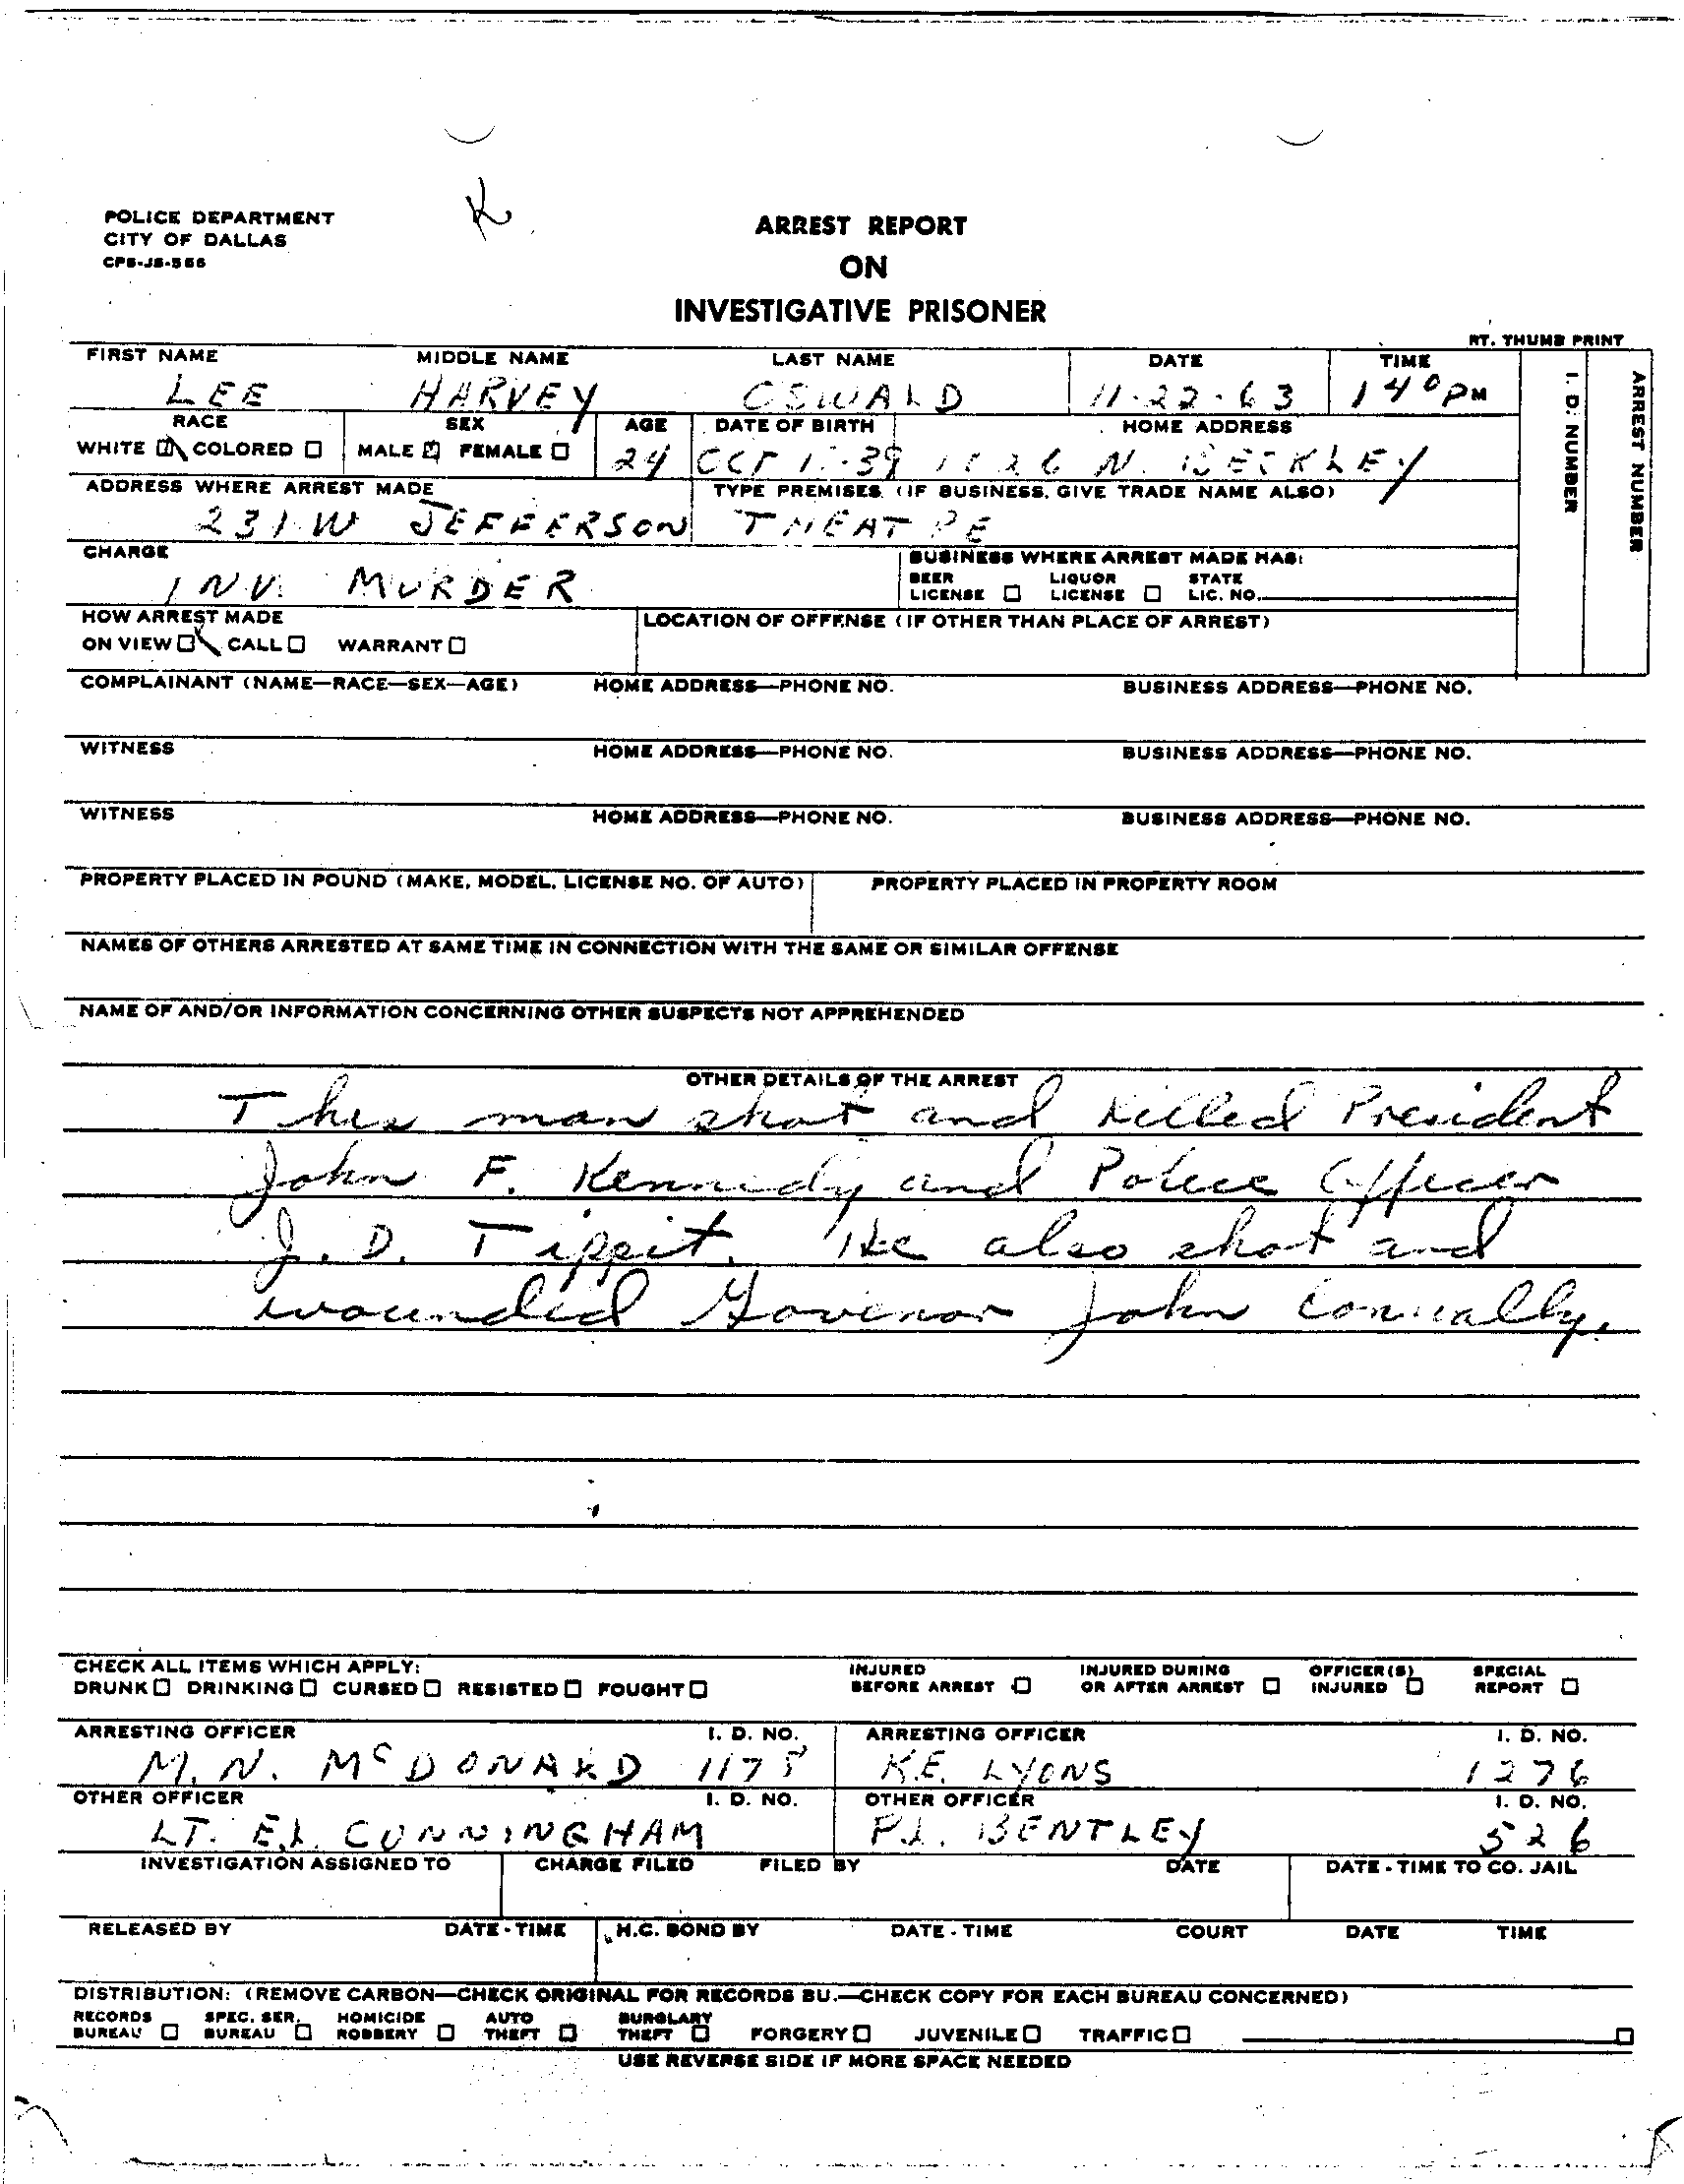 POLICE DEPARTMENT
CITY OF DALLAS
CPS-JS-566
K
ARREST REPORT
ON
INVESTIGATIVE PRISONER
RT. THUMB PRINT
FIRST NAME MIDDLE NAME LAST NAME DATE TIME
LEE HARVEY OSWALD 11-22-63 1 40 PM
I. D. NUMBER
ARREST NUMBER
RACE SEX AGE DATE OF BIRTH HOME ADDRESS
WHITE COLORED MALE FEMALE 24 OCT 39 1026 N. BECKLEY
ADDRESS WHERE ARREST MADE TYPE PREMISES (IF BUSINESS, GIVE TRADE NAME ALSO)
231 W JEFFERSON THEATRE
CHARGE BUSINESS WHERE ARREST MADE HAS:
INV. MURDER BEER LICENSE LIQUOR LICENSE STATE LIC. NO.
HOW ARREST MADE LOCATION OF OFFENSE (IF OTHER THAN PLACE OF ARREST)
ON VIEW CALL WARRANT
COMPLAINANT (NAME—RACE—SEX—AGE) HOME ADDRESS—PHONE NO. BUSINESS ADDRESS—PHONE NO.
WITNESS HOME ADDRESS—PHONE NO. BUSINESS ADDRESS—PHONE NO.
WITNESS HOME ADDRESS—PHONE NO. BUSINESS ADDRESS—PHONE NO.
PROPERTY PLACED IN POUND (MAKE, MODEL, LICENSE NO. OF AUTO) PROPERTY PLACED IN PROPERTY ROOM
NAMES OF OTHERS ARRESTED AT SAME TIME IN CONNECTION WITH THE SAME OR SIMILAR OFFENSE
NAME OF AND/OR INFORMATION CONCERNING OTHER SUSPECTS NOT APPREHENDED
OTHER DETAILS OF THE ARREST
This man shot and killed President
John F. Kennedy and Police Officer
J. D. Tippit. He also shot and
wounded Govenor John Connally.
CHECK ALL ITEMS WHICH APPLY:
DRUNK DRINKING CURSED RESISTED FOUGHT INJURED BEFORE ARREST INJURED DURING OR AFTER ARREST OFFICER(S) INJURED SPECIAL REPORT
ARRESTING OFFICER I. D. NO. ARRESTING OFFICER I. D. NO.
M. N. McDONALD 1178 K.E. LYONS 1276
OTHER OFFICER I. D. NO. OTHER OFFICER I. D. NO.
LT. E.L. CUNNINGHAM P.L. BENTLEY 526
INVESTIGATION ASSIGNED TO CHARGE FILED FILED BY DATE DATE - TIME TO CO. JAIL
RELEASED BY DATE - TIME H.C. BOND BY DATE - TIME COURT DATE TIME
DISTRIBUTION: (REMOVE CARBON—CHECK ORIGINAL FOR RECORDS BU.—CHECK COPY FOR EACH BUREAU CONCERNED)
RECORDS BUREAU SPEC. SER. BUREAU HOMICIDE ROBBERY AUTO THEFT BURGLARY THEFT FORGERY JUVENILE TRAFFIC
USE REVERSE SIDE IF MORE SPACE NEEDED